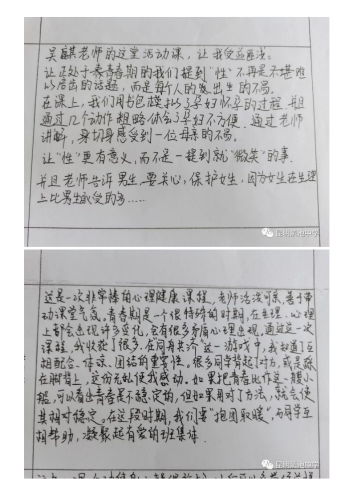 吴麒老师的这堂活动课，让我受益匪浅。
让正处于青春期的我们提到“性”不再是不堪难
以启出的话题，而是每个人的发出生的不易。
在课上，我们用书包模拟了孕妇怀孕的过程，并且
通过几个动作粗略体会了孕妇不方便。通过老师
讲解，身切身感受到一位母亲的不易。
让“性”更有意义，而不是一提到就“微笑”的事。
并且老师告诉男生，要关心，保护女生，因为女生在生理
上比男生承受的多……
昆明滇池中学
这是一次非常棒的心理健康课程，老师活泼可亲，善于带
动课堂气氛。青春期是一个很特殊的时期，在生理、心理
上都会出现许多变化，会有很多矛盾心理出现，通过这一次
课程，我收获了很多。在同舟共济这一游戏中，我知道了互
相配合、体谅、团结的重要性。很多同学背起了对方，或是踩
在脚背上，这份友让使我感动。如果把青春比作这一艘小
船，可以看出青春是不稳定的，但如果用对了方法，就会使
其相对稳定。在这段时期，我们要“抱团取暖”，与同学互
相帮助，凝聚起有爱的班集体。
昆明滇池中学